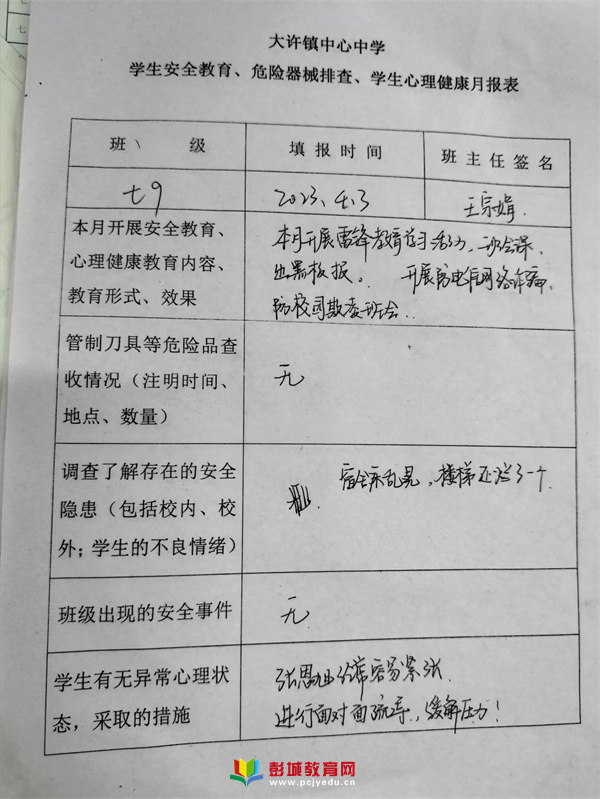 大许镇中心中学
学生安全教育、危险器械排查、学生心理健康月报表
班 级
填报时间
班主任签名
七9
2023.4.3
王宗娟
本月开展安全教育、
心理健康教育内容、
教育形式、效果
本月开展雷锋教育学习活动,班会课
出黑板报。 开展防电信网络诈骗
防校园欺凌班会.
管制刀具等危险品查
收情况（注明时间、
地点、数量）
无
调查了解存在的安全
隐患（包括校内、校
外；学生的不良情绪）
宿舍床乱晃,楼梯还当了一个.
班级出现的安全事件
无
学生有无异常心理状
态，采取的措施
经常容易紧张
进行面对面疏导,缓解压力!
彭城教育网
www.pcjyedu.cn